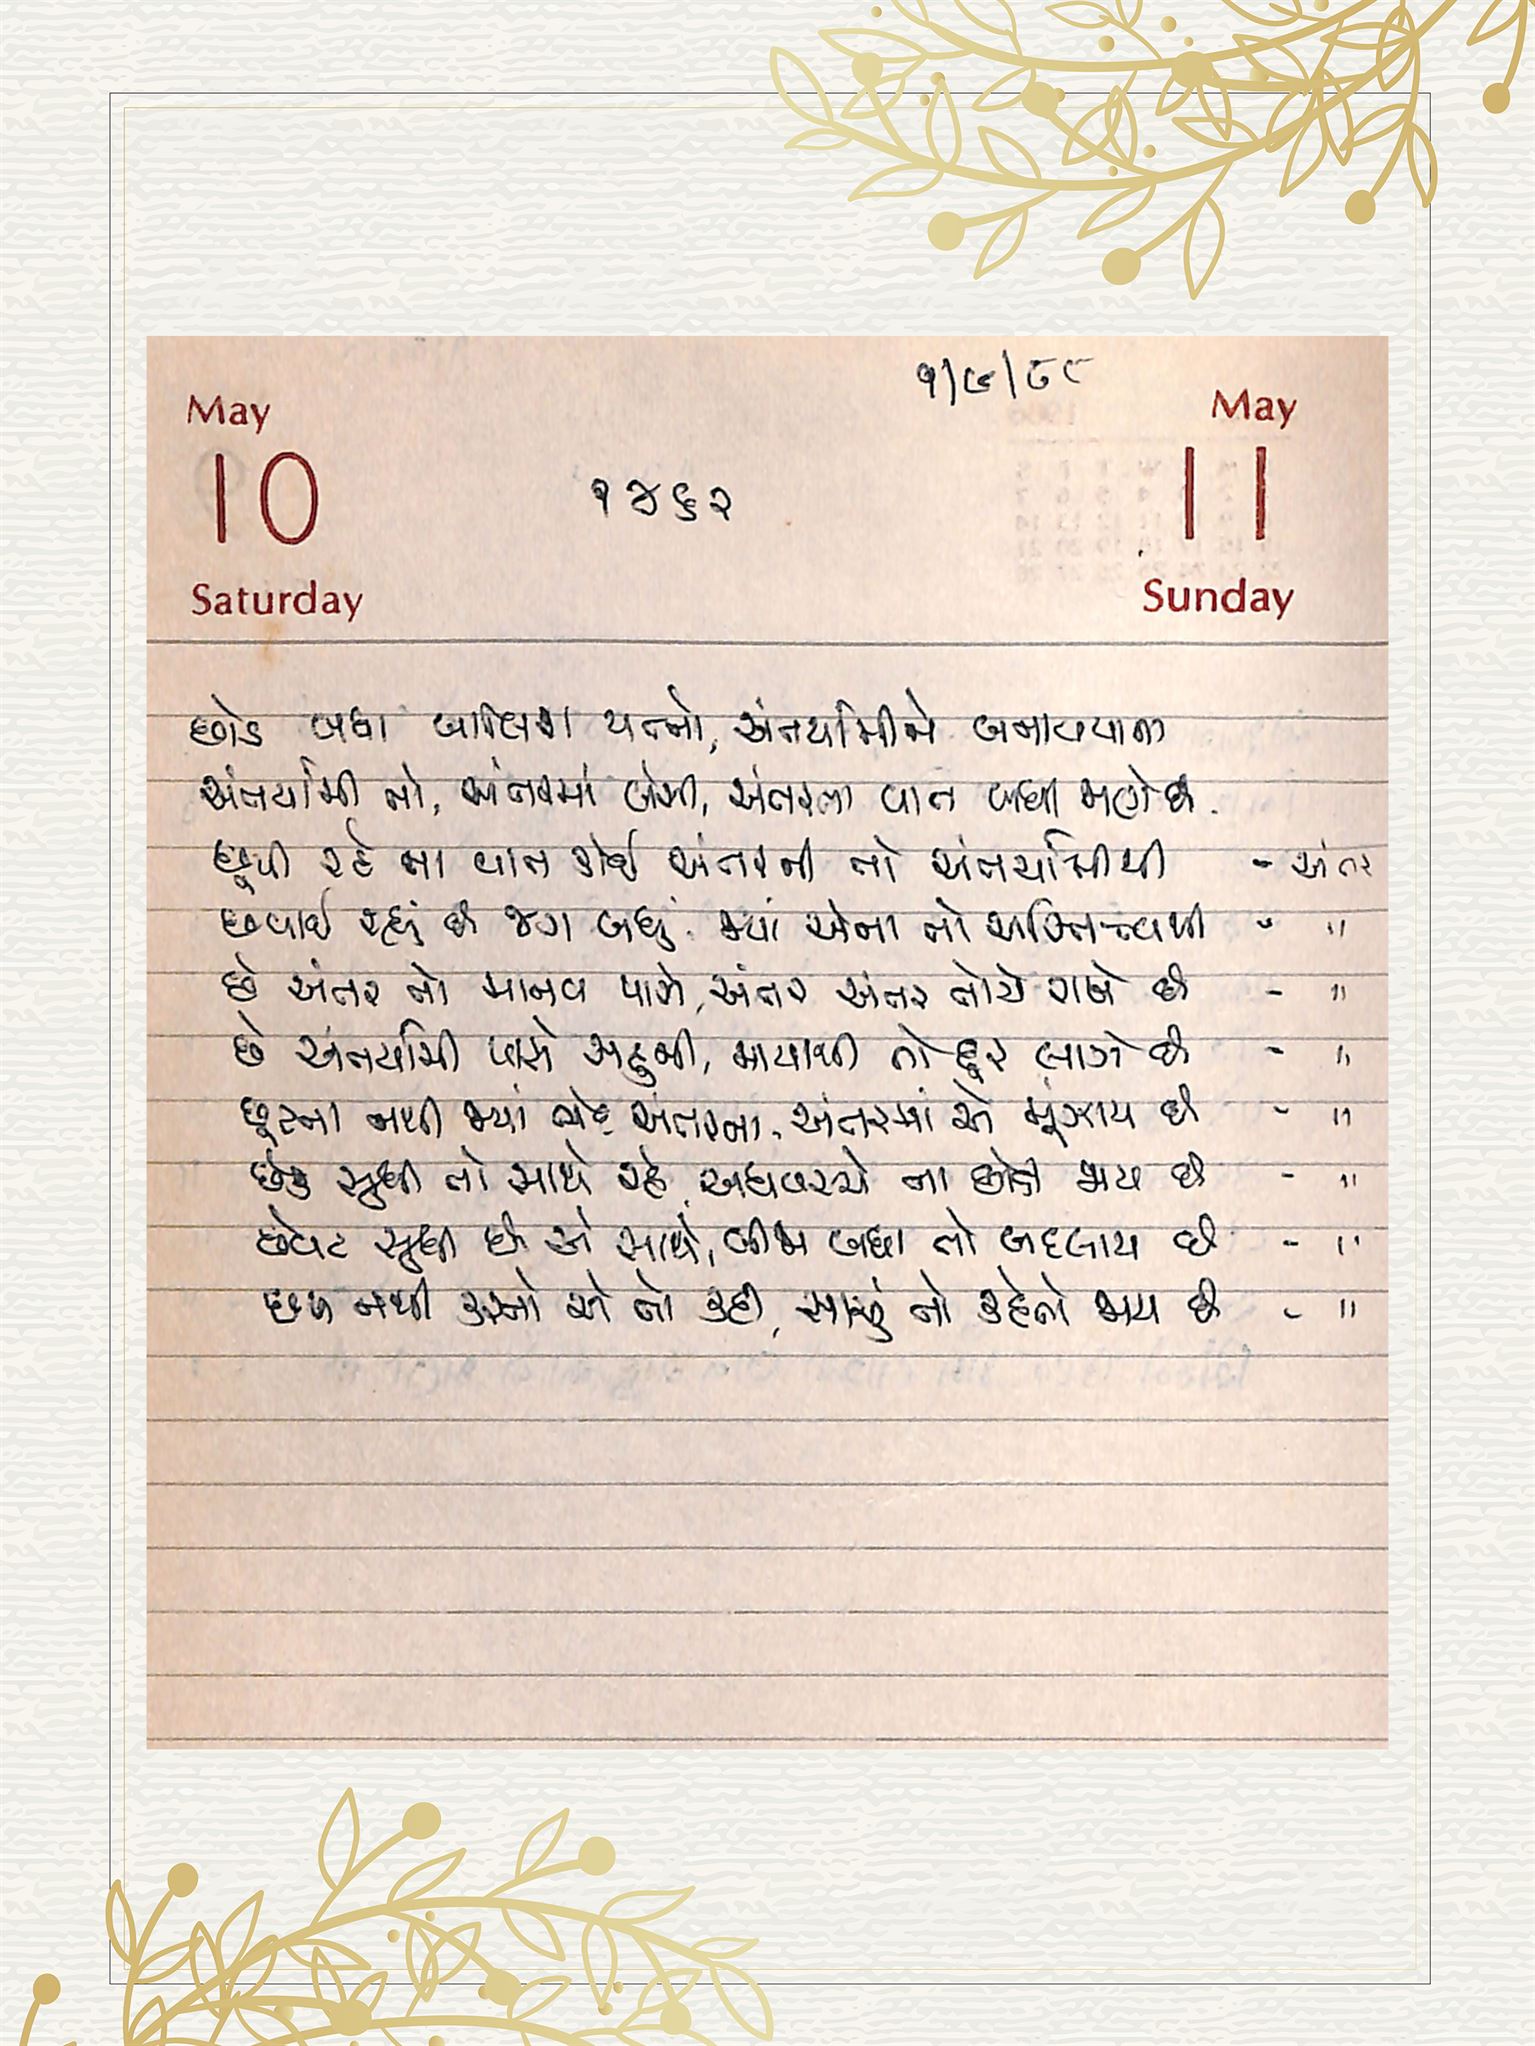 ૧/૯/૮૮
May
10
Saturday
૧૪૬૨
May
11
Sunday
છોડ બધા બાલિશ યત્નો, અંતર્યામીને બનાવવાના
અંતર્યામી તો, અંતરમાં બેસી, અંતરના વાત બધી જાણે છે.
છૂપી રહે ના વાત કોઈ અંતરની તો અંતર્યામીથી - અંતર
છવાઈ રહ્યું છે જગ બધું. જ્યાં એના તો અસ્તિત્વથી - "
છે અંતર તો માનવ પાસે, અંતર અંતર તોયે રાખે છે - "
છે અંતર્યામી પાસે સહુની, માયાથી તો દૂર લાગે છે - "
છૂટતા નથી જ્યાં અંતરના, અંતરમાં એ મૂંઝાય છે - "
છેક સુધી તો સાથે રહે, અધવચ્ચે ના છોડી જાય છે - "
છેવટ સુધી છે એ સાથે, બીજા બધા તો બદલાય છે - "
છળ નથી કરતો એ તો કદી, સાચું તો કહેતો જાય છે - "